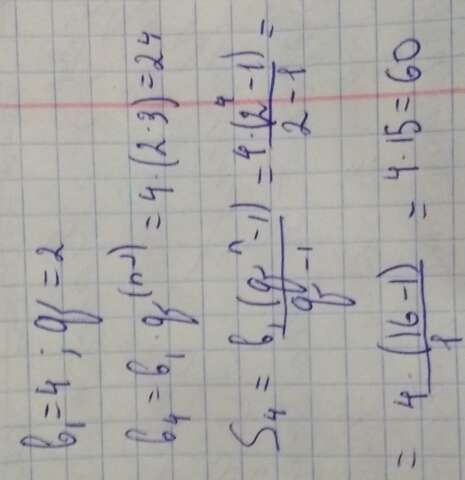 b₁ = 4 ; q = 2
b₄ = b₁ · q⁽ⁿ⁻¹⁾ = 4 · (2 · 3) = 24
S₄ = b₁(qⁿ - 1) / q - 1 = 4 · (2⁴ - 1) / 2 - 1 =
= 4 · (16 - 1) / 1 = 4 · 15 = 60